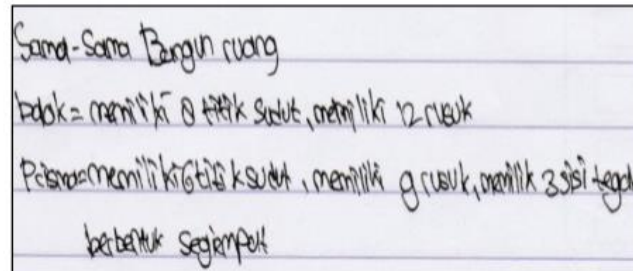 Sama-Sama Bangun ruang
balok = memiliki 8 titik sudut, memiliki 12 rusuk
Prisma = memiliki 6 titik sudut, memiliki 9 rusuk, memilik 3 sisi tegak
berbentuk segiempat